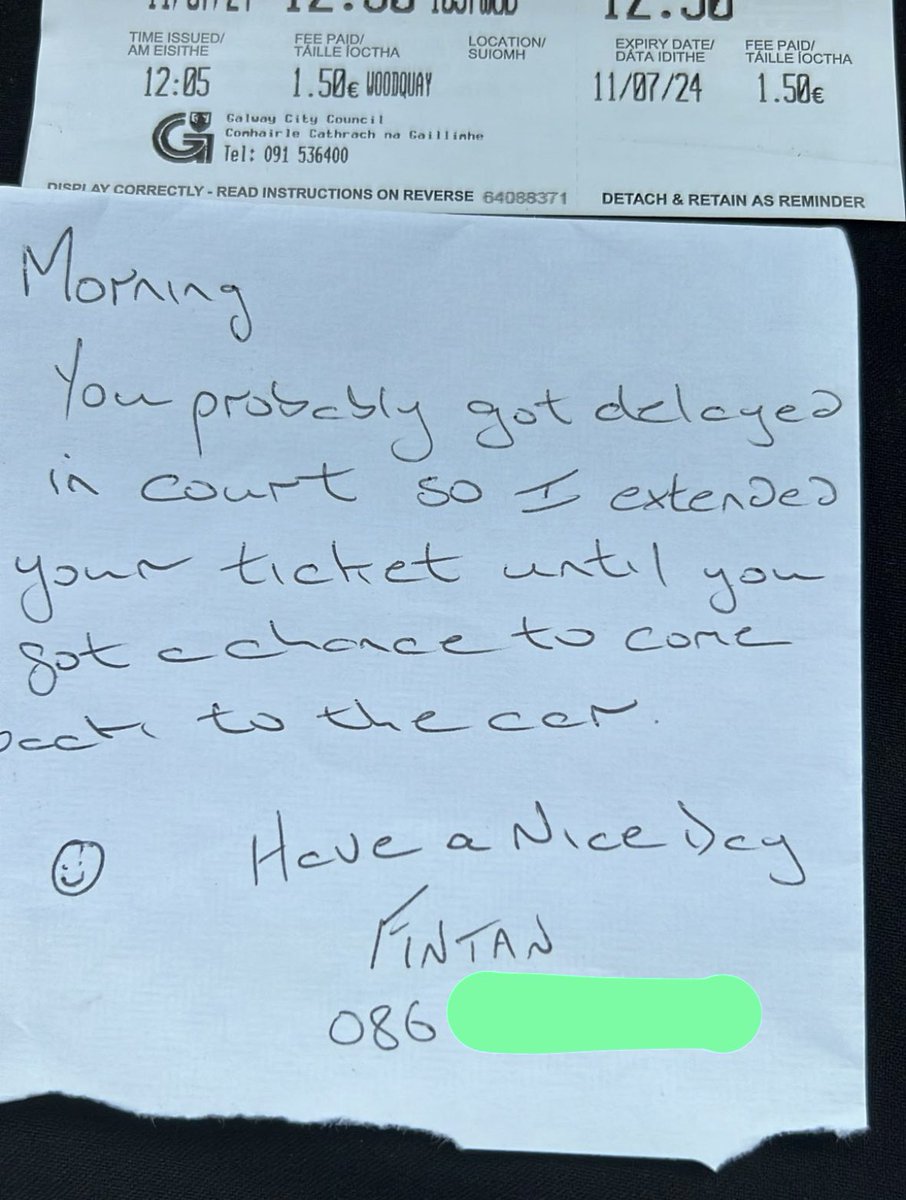 12:30
12:30
TIME ISSUED/ FEE PAID/ LOCATION/ EXPIRY DATE/ FEE PAID/
AM EISITHE TÁILLE ÍOCTHA SUIOMH DÁTA IDITHE TÁILLE ÍOCTHA
12:05 1.50€ WOODQUAY 11/07/24 1.50€
Galway City Council
Comhairle Cathrach na Gaillimhe
Tel: 091 536400
DISPLAY CORRECTLY - READ INSTRUCTIONS ON REVERSE 64088371 DETACH & RETAIN AS REMINDER
Morning
You probably got delayed
in court so I extended
your ticket until you
got a chance to come
back to the car.
Have a Nice Day
FINTAN
086